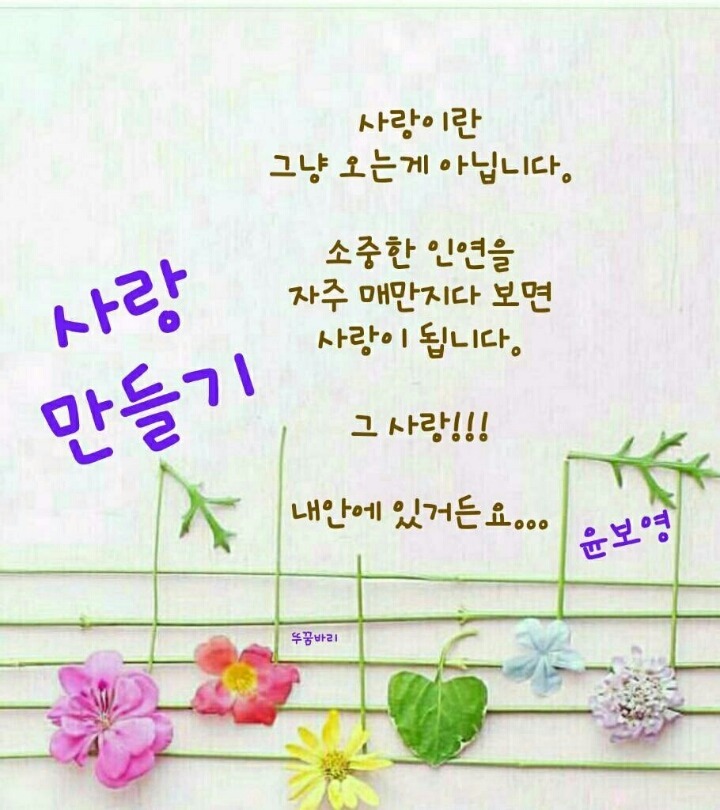 사랑
만들기
사랑이란
그냥 오는게 아닙니다.
소중한 인연을
자주 매만지다 보면
사랑이 됩니다.
그 사랑!!!
내안에 있거든요...
윤보영
뚜꿈바리